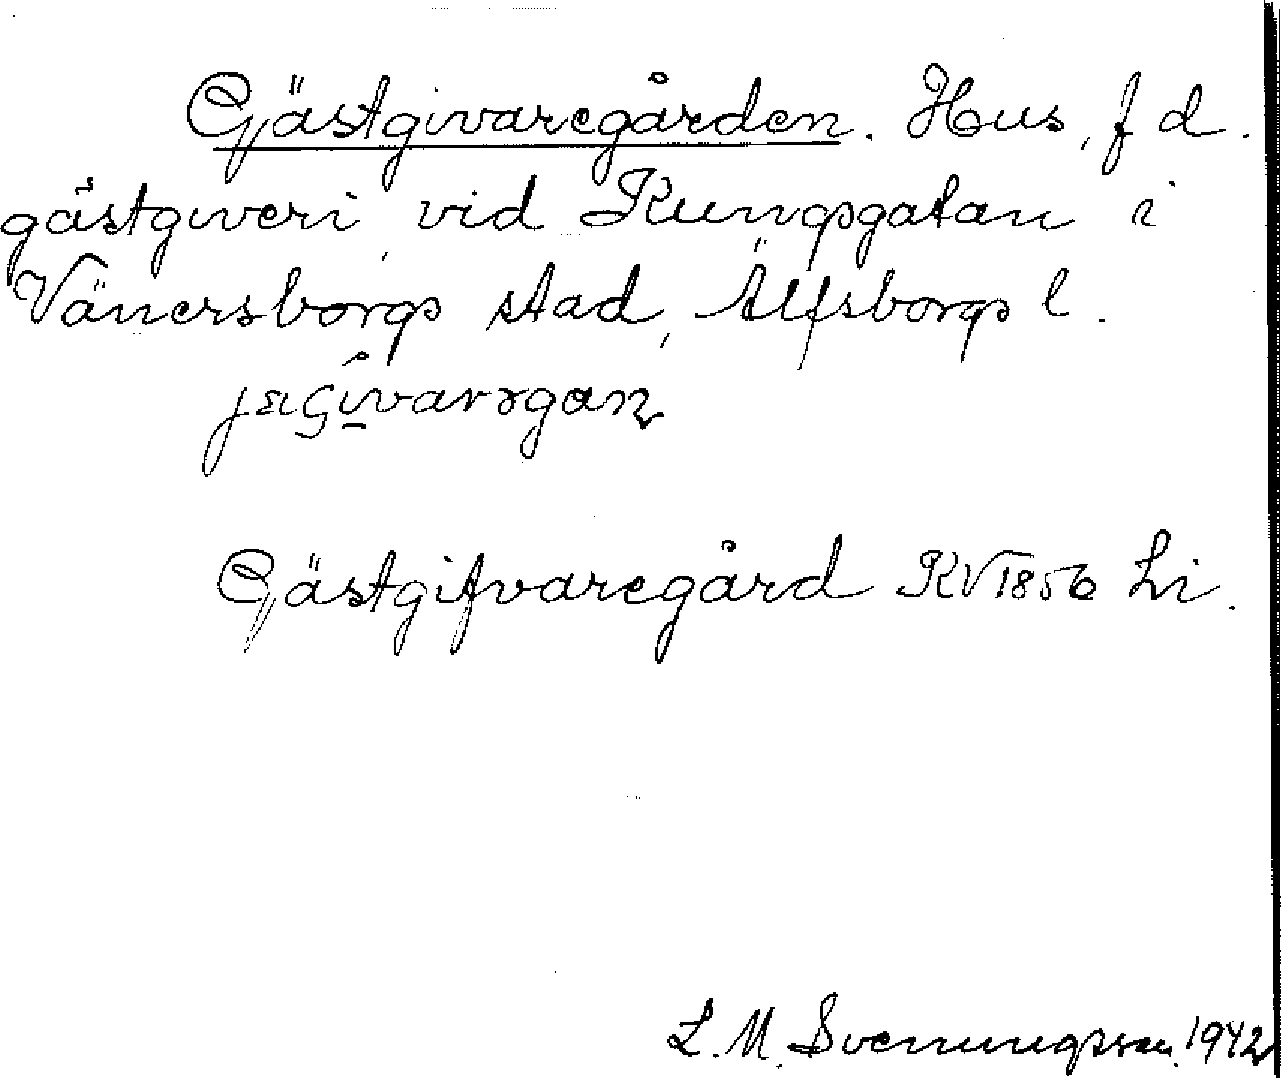 Gästgivaregården. Hus, f d.
gästgiveri vid Kungsgatan i
Vänersborgs stad, Älfsborgs l.
Gästgifvaregård KV 1856 Li.
L. M. Svenungsson. 1942